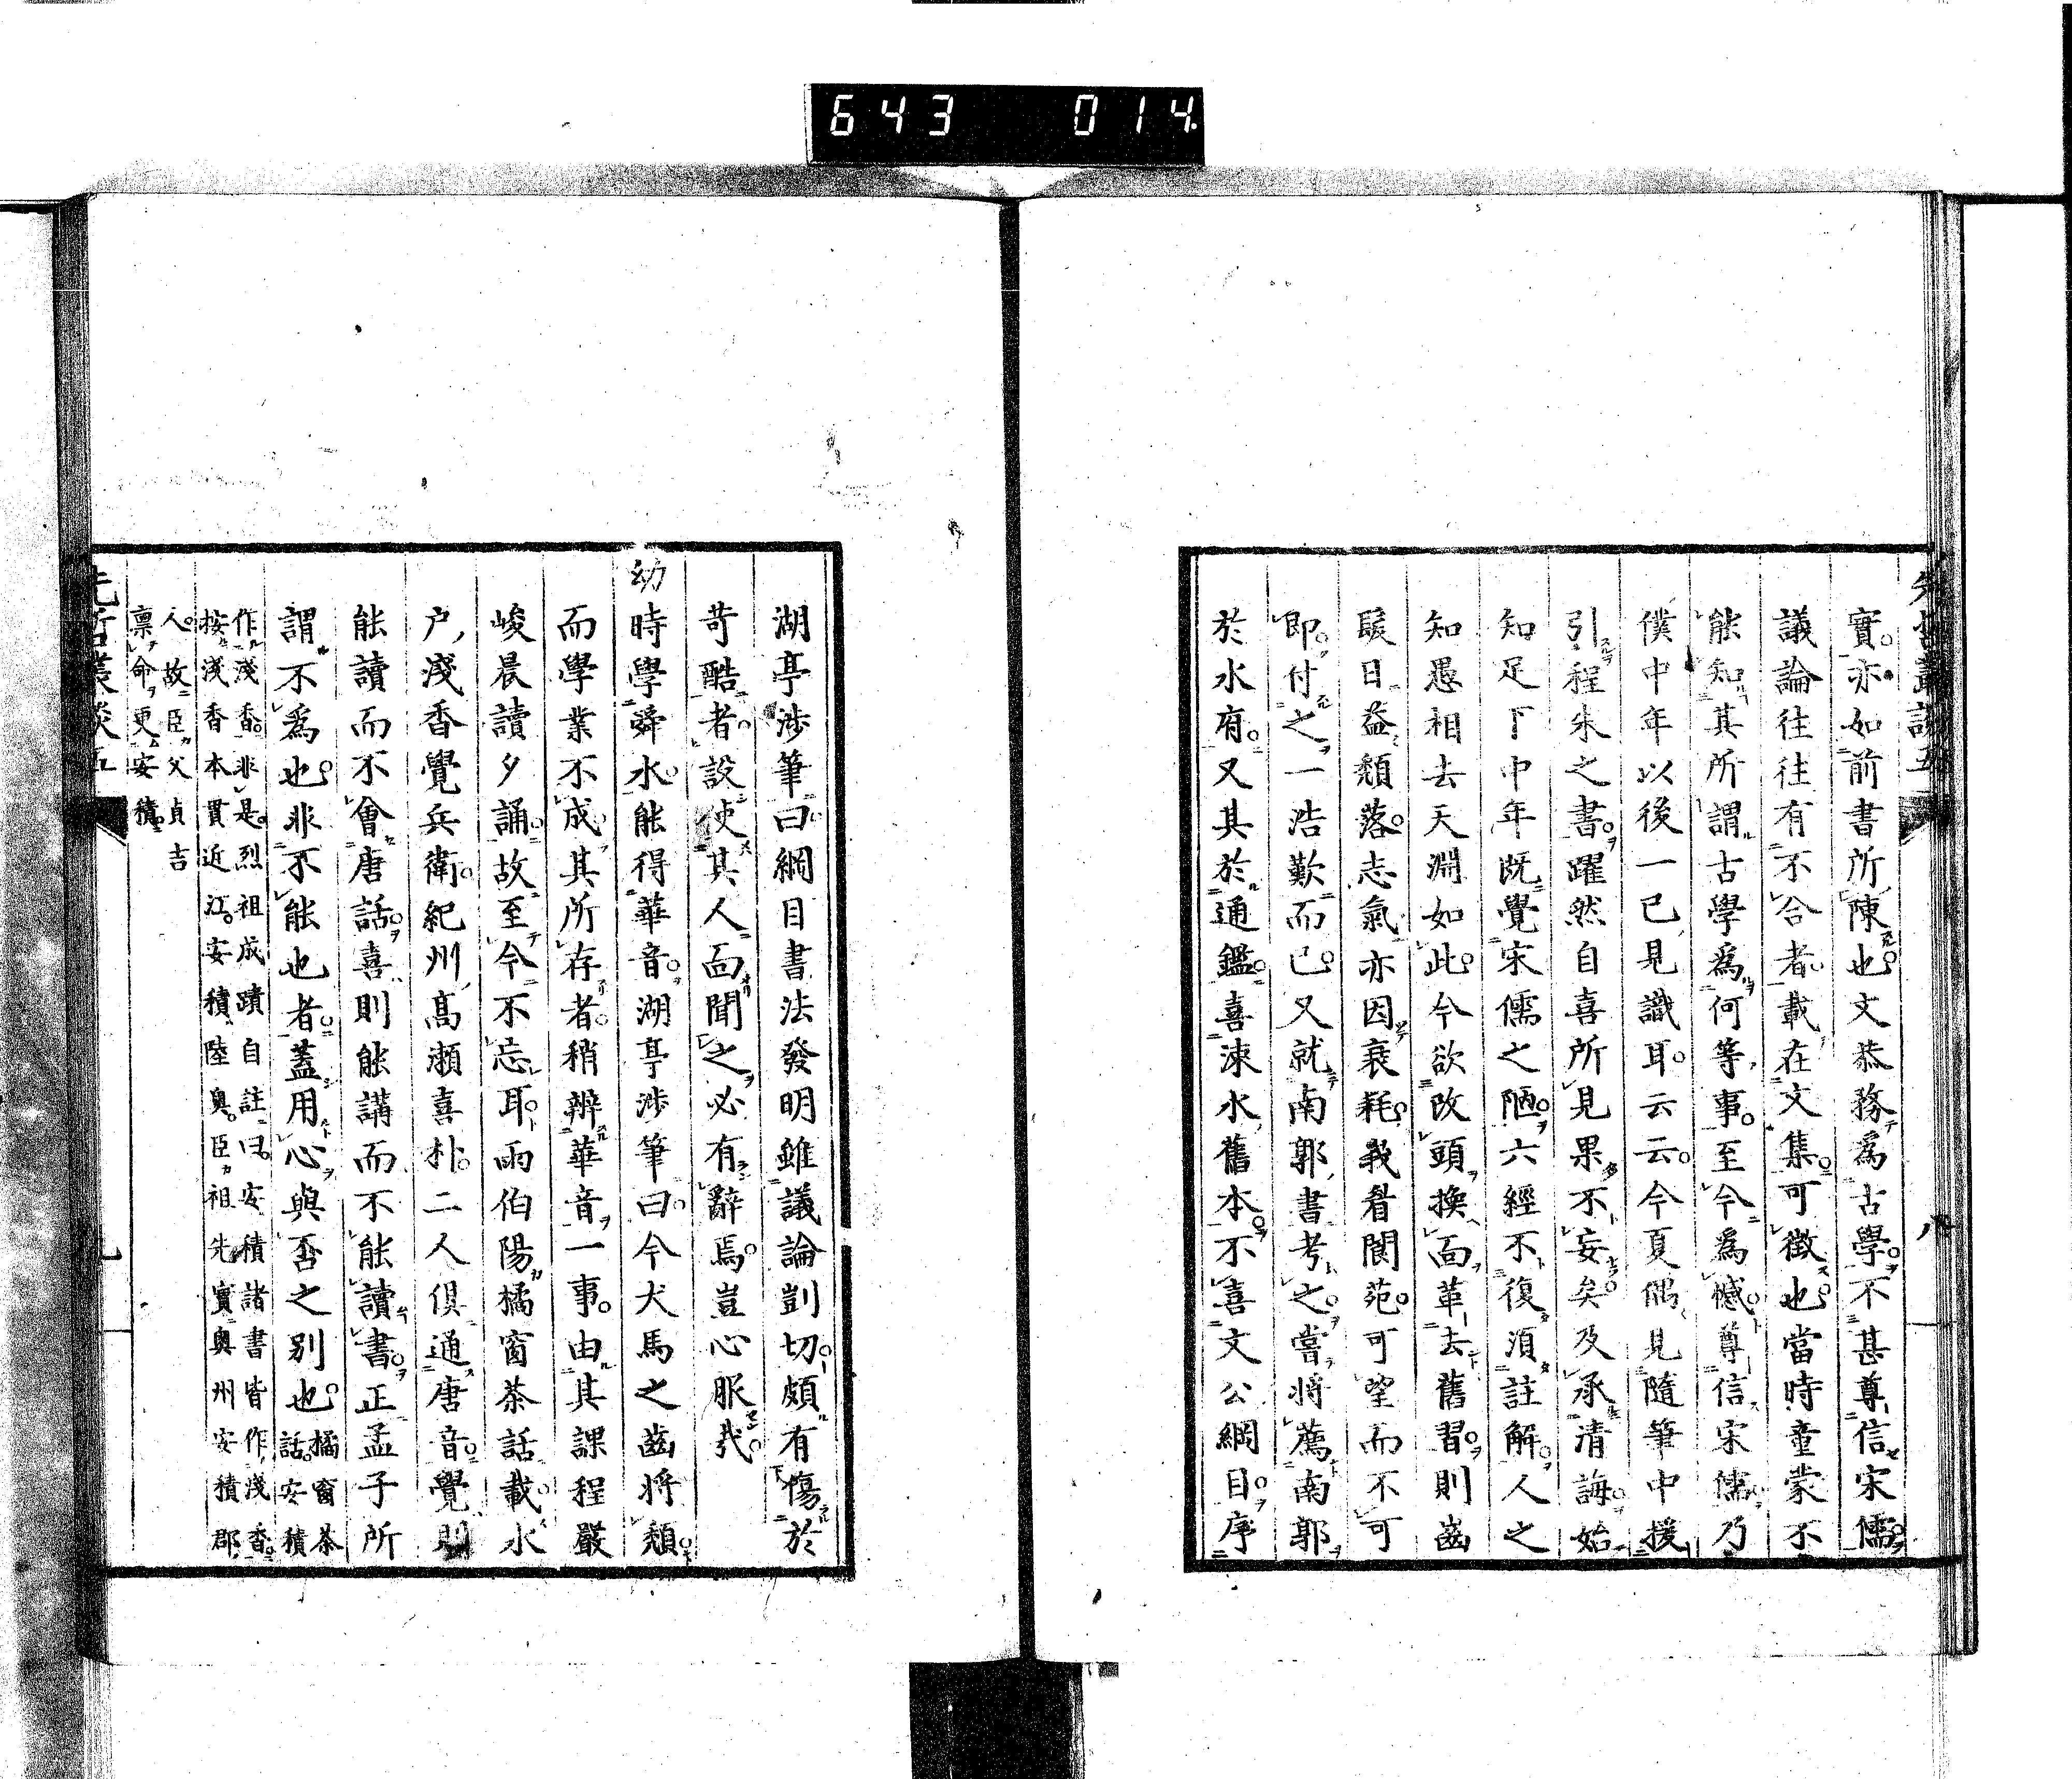 643 014
實亦如前書所陳也文恭務爲古學不甚尊信宋儒
議論往往有不合者載在文集可徵也當時童蒙不
能知其所謂古學爲何等事至今爲憾尊信宋儒乃
僕中年以後一己見識耳云云今夏偶見隨筆中援
引程朱之書躍然自喜所見果不妄矣及承清誨始
知足下中年既覺宋儒之陋六經不復須註解人之
知愚相去天淵如此今欲改頭換面革去舊習則齒
髮日益頹落志氣亦因衰耗我看閬苑可望而不可
即付之一浩歎而已又就南郭書考之嘗將薦南郭
於水府又其於通鑑喜涑水舊本不喜文公綱目序
八
湖亭渉筆曰綱目書法發明雖議論剴切頗有傷於
苛酷者設使其人面聞之必有辭焉豈心服哉
幼時學舜水能得華音湖亭渉筆曰今犬馬之齒將頹
而學業不成其所存者稍辨華音一事由其課程嚴
峻晨讀夕誦故至今不忘耳雨伯陽橘窗茶話載水
戸淺香覺兵衛紀州高瀬喜朴二人俱通唐音覺則
能讀而不會唐話喜則能講而不能讀書正孟子所
謂不爲也非不能也者蓋用心與否之別也橘窗茶
話安積
作淺香非是烈祖成蹟自註曰安積諸書皆作淺香
按淺香本貫近江安積陸奧臣祖先實奧州安積郡
人故臣父貞吉
稟命更安積
先哲叢談五